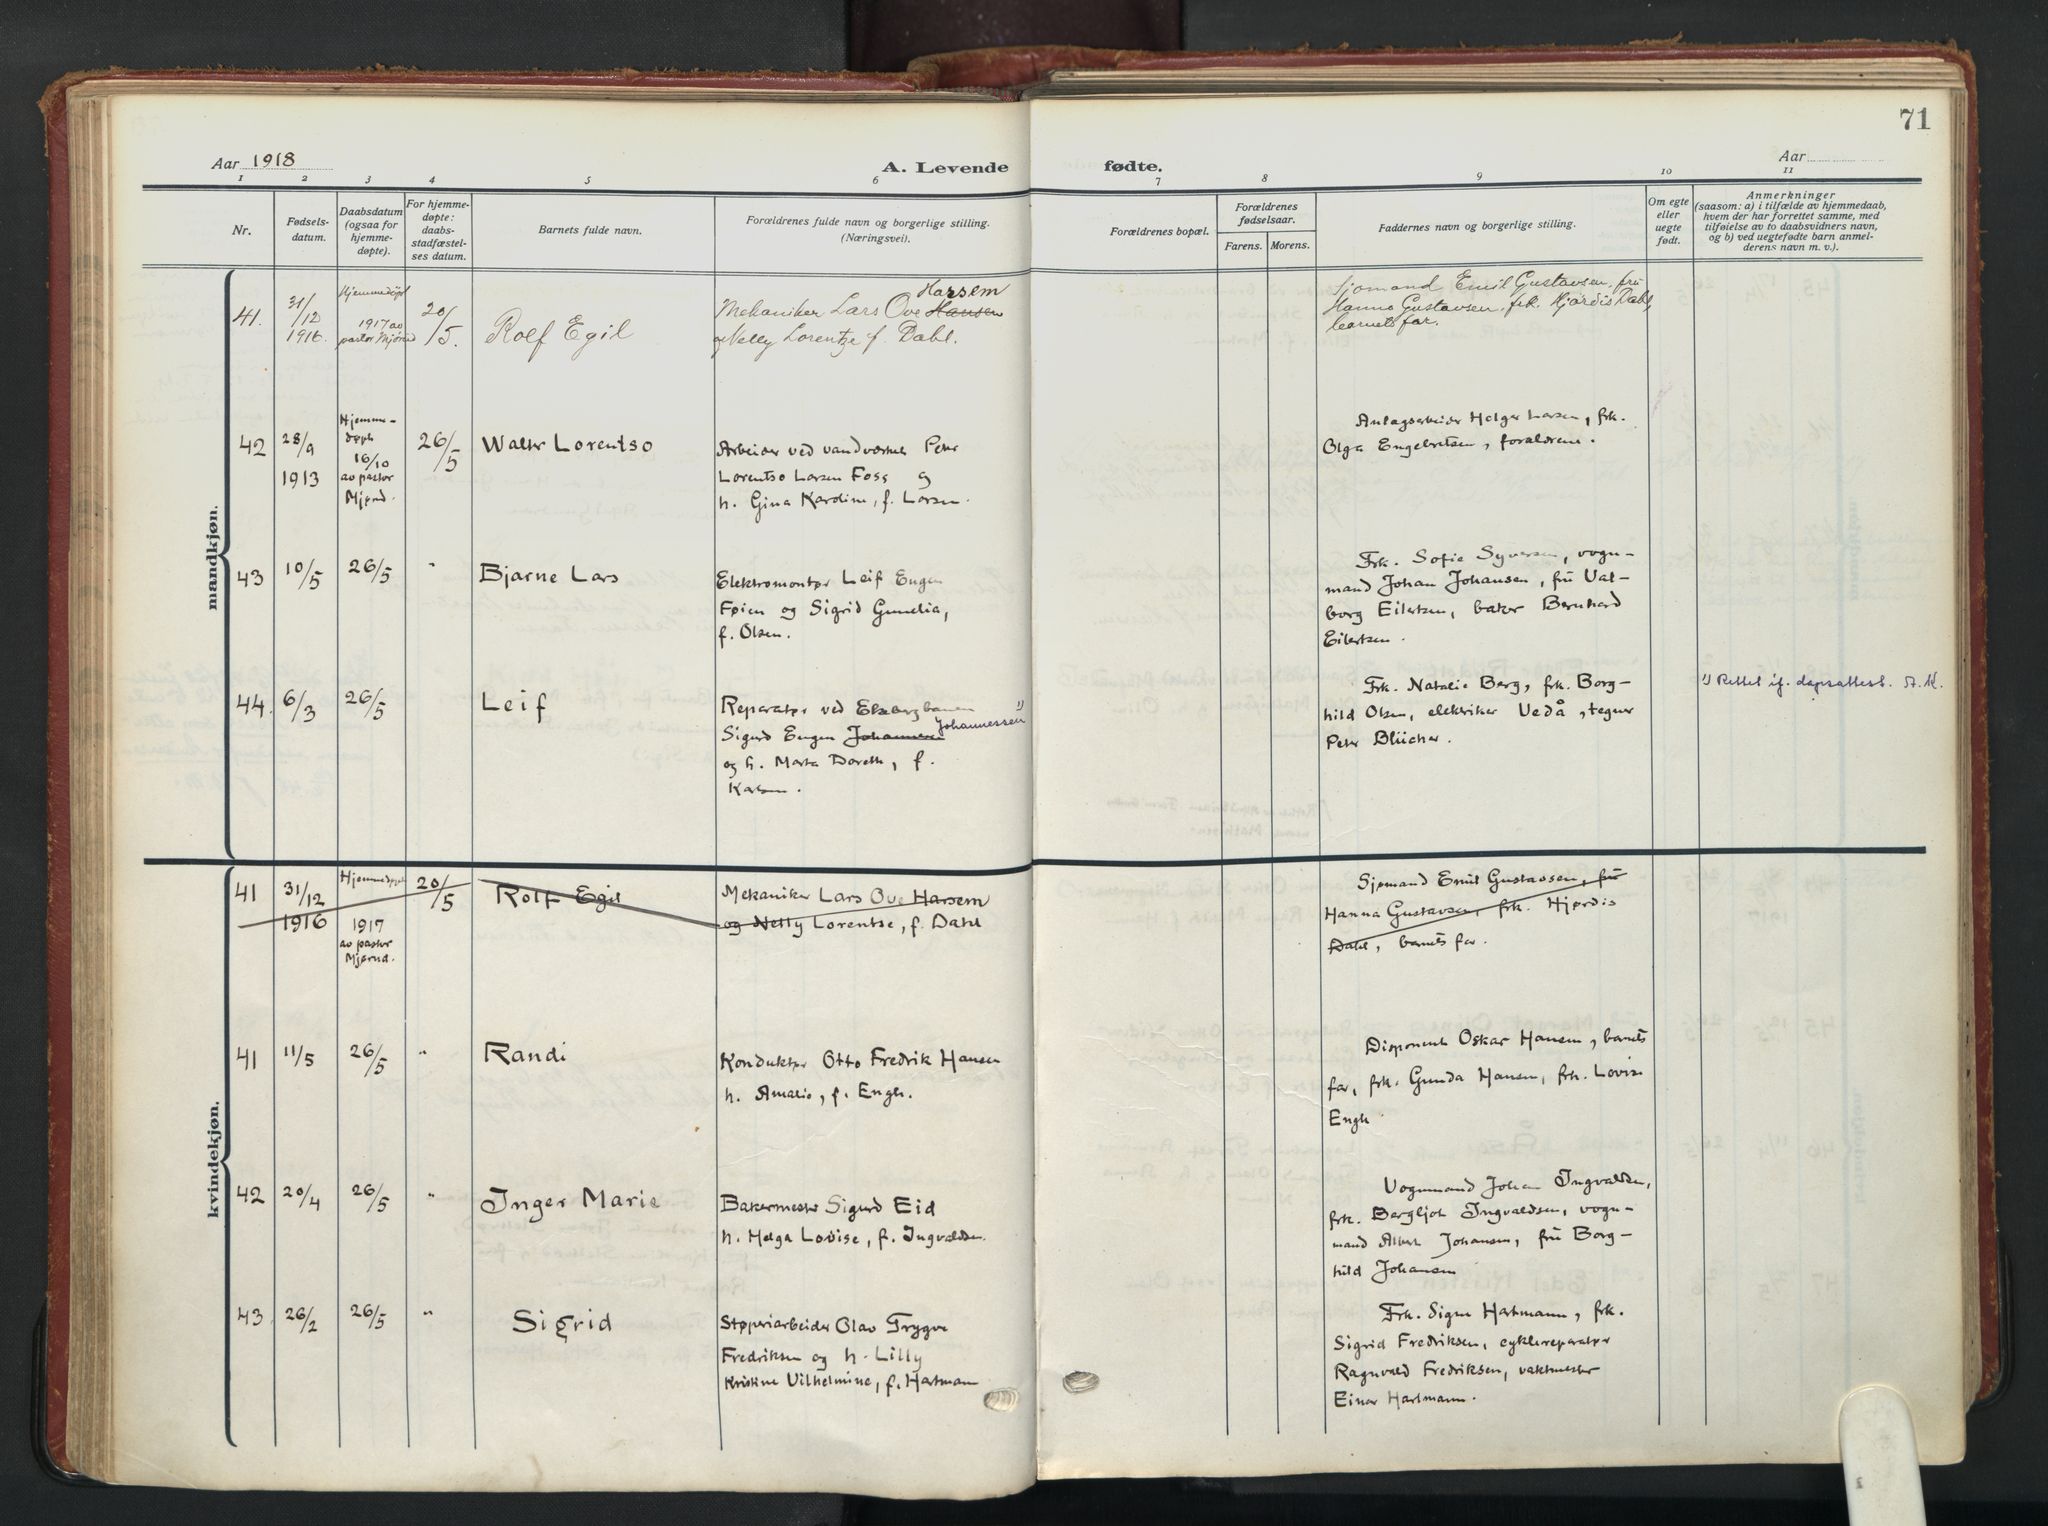 71
Aar 1918
A. Levende fødte.
Aar
1 2 3 4 5 6 7 8 9 10 11
Nr.
Fødsels-
datum.
Daabsdatum
(ogsaa for
hjemme-
døpte).
For hjemme-
døpte:
daabs-
stadfæstel-
ses datum.
Barnets fulde navn.
Forældrenes fulde navn og borgerlige stilling.
(Næringsvei).
Forældrenes bopæl.
Forældrenes
fødselsaar.
Farens. Morens.
Faddernes navn og borgerlige stilling.
Om egte
eller
uegte
født.
Anmerkninger
(saasom: a) i tilfælde av hjemmedaab,
hvem der har forrettet samme, med
tilføielse av to daabsvidners navn,
og b) ved uegtefødte barn anmel-
derens navn m. v.).
mandkjøn.
41.
31/12
1916.
Hjemmedøpt
1917 av
pastor Mjørud
20/5.
Rolf Egil
Harsem
Mekaniker Lars Ove Hansen
og Nelly Lorentze f. Dahl.
Sjømand Emil Gustavsen, fru
Hanna Gustavsen, frk. Hjørdis Dahl,
barnets far.
42
28/9
1913
Hjemme-
døpt
16/10
av pastor
Mjørud.
26/5
Walter Lorentso
Arbeider ved vandverket Peter
Lorentso Larsen Foss og
h. Gina Kardine, f. Larsen.
Anlagsarbeider Helger Larsen, frk.
Olga Engebretsen, forældrene.
43
10/5
26/5
"
Bjarne Lars
Elektromontør Leif Eugen
Føien og Sigrid Gunelia,
f. Olsen.
Frk. Sofie Syversen, vogn-
mand Johan Johansen, frü Val-
borg Eilertsen, baker Bernhard
Eilertsen.
44.
6/3
26/5
"
Leif
Reparatør ved Ekebergbanen
Johannessen 1)
Sigurd Eugen Johannesen
og h. Marta Doreth, f.
Karlsen.
Frk. Natalie Berg, frk. Borg-
hild Olsen, elektriker Vedå, tegner
Peter Blücher.
1) Rettet if. dapsattest. A. K.
kvindekjøn.
41
31/12
1916
Hjemmedøpt
1917
av pastor
Mjørud.
20/5
Rolf Egil
Mekaniker Lars Ove Harsem
og Nelly Lorentse, f. Dahl
Sjømand Emil Gustavsen, frü
Hanna Gustavsen, frk. Hjørdis
Dahl, barnets far.
41
11/5
26/5
"
Randi
Konduktør Otto Fredrik Hansen
h. Amalie, f. Engh.
Disponent Oskar Hansen, barnets
far, frk. Gunda Hansen, frk. Lovise
Engh
42
20/4
26/5
"
Inger Marie
Bakermester Sigurd Eid
h. Helga Lovise, f. Ingvaldsen.
Vognmand Johan Ingvaldsen,
frk. Bergljot Ingvaldsen, vogn-
mand Albert Johansen, frü Borg-
hild Johansen
43
26/2
26/5
"
Sigrid
Støperiarbeider Olav Trygve
Fredriksen og h. Lilly
Kristine Vilhelmine, f. Hartmann
Frk. Signe Hartmann, frk.
Sigrid Fredriksen, cyklereparatør
Ragnvald Fredriksen, vaktmester
Einar Hartmann.